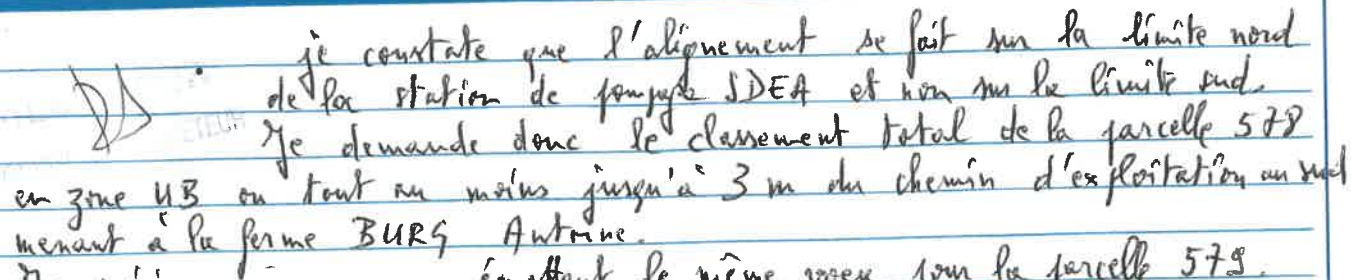 je constate que l'alignement se fait sur la limite nord
de la station de pompage SDEA et non sur la limite sud.
Je demande donc le classement total de la parcelle 578
en zone UB ou tout au moins jusqu'à 3 m du chemin d'exploitation au sud
menant à la ferme BURG Antoine.
émettent le même voeu pour la parcelle 579.